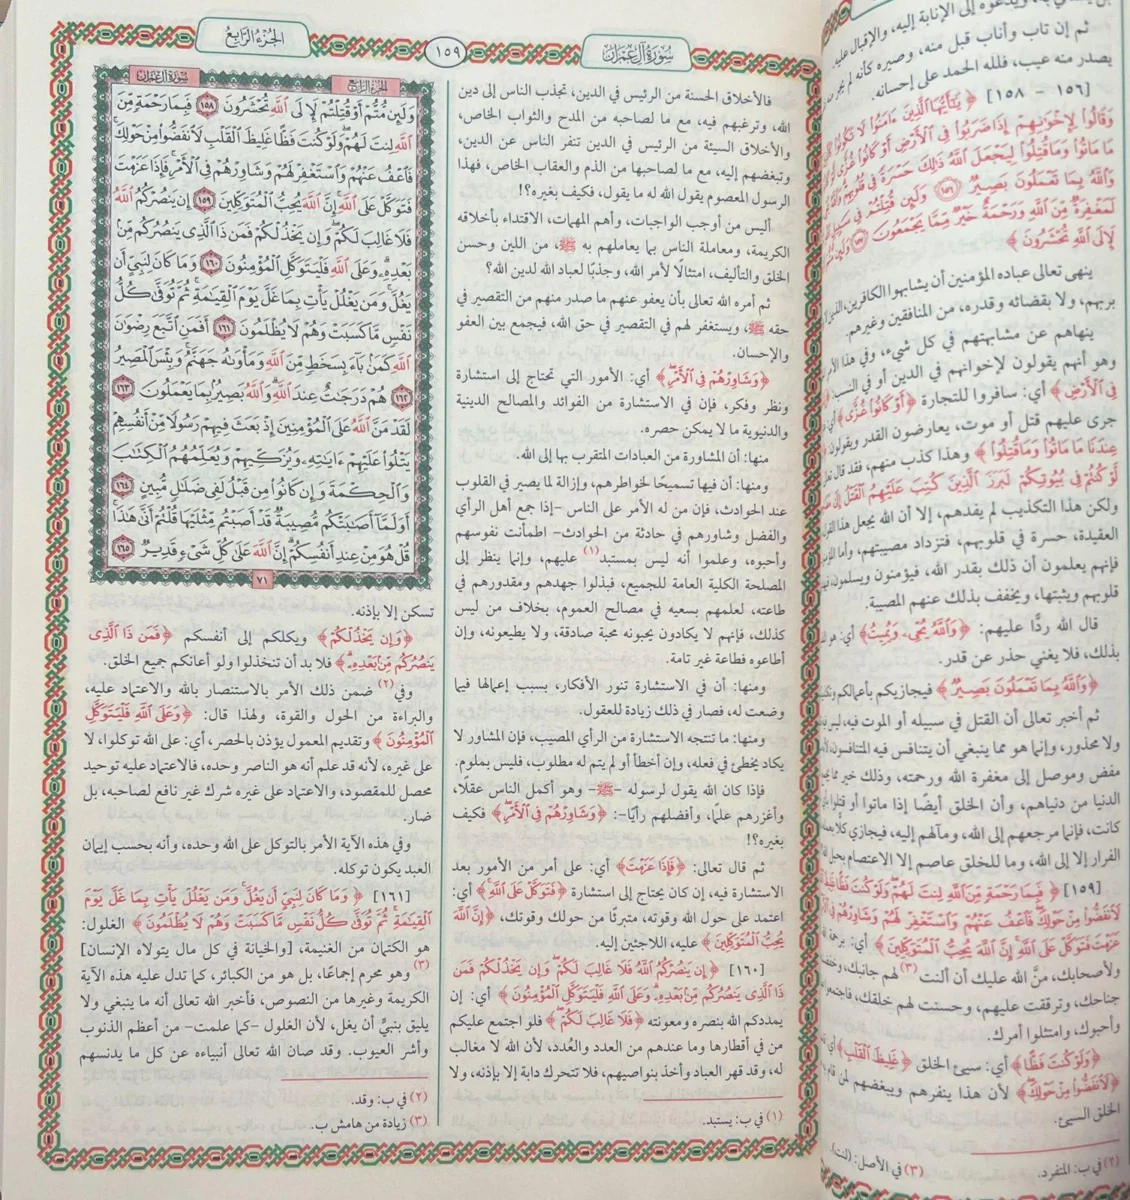 ثم إن تاب وأناب قبل منه، وصيره كأنه لم يجر
يصدر منه عيب، فلله الحمد على إحسانه.
[١٥٦ - ١٥٨] ﴿يَٰٓأَيُّهَا ٱلَّذِينَ ءَامَنُوا۟ لَا تَكُونُوا۟
وَقَالُوا۟ لِإِخْوَٰنِهِمْ إِذَا ضَرَبُوا۟ فِى ٱلْأَرْضِ أَوْ كَانُوا۟ غُزًّى
مَا مَاتُوا۟ وَمَا قُتِلُوا۟ لِيَجْعَلَ ٱللَّهُ ذَٰلِكَ حَسْرَةً فِى قُلُوبِهِمْ
وَٱللَّهُ بِمَا تَعْمَلُونَ بَصِيرٌ ١٥٦ وَلَئِن قُتِلْتُمْ فِى
لَمَغْفِرَةٌ مِّنَ ٱللَّهِ وَرَحْمَةٌ خَيْرٌ مِّمَّا يَجْمَعُونَ ١٥٧ وَلَئِن
لَإِلَى ٱللَّهِ تُحْشَرُونَ﴾
ينهى تعالى عباده المؤمنين أن يشابهوا الكافرين،
بربهم، ولا بقضائه وقدره، من المنافقين وغيرهم.
ينهاهم عن مشابهتهم في كل شيء، وفي هذا
وهو أنهم يقولون لإخوانهم في الدين أو في النسب:
فِى ٱلْأَرْضِ﴾ أي: سافروا للتجارة ﴿أَوْ كَانُوا۟ غُزًّى﴾
جرى عليهم قتل أو موت، يعارضون القدر ويقولون
عِندَنَا مَا مَاتُوا۟ وَمَا قُتِلُوا۟﴾ وهذا كذب منهم، فقد قال
لَّوْ كُنتُمْ فِى بُيُوتِكُمْ لَبَرَزَ ٱلَّذِينَ كُتِبَ عَلَيْهِمُ ٱلْقَتْلُ
ولكن هذا التكذيب لم يفدهم، إلا أن الله يجعل هذا
العقيدة، حسرة في قلوبهم، فتزداد مصيبتهم، وأما
فإنهم يعلمون أن ذلك بقدر الله، فيؤمنون ويسلمون،
قلوبهم ويثبتها، ويخفف بذلك عنهم المصيبة.
قال الله ردًّا عليهم: ﴿وَٱللَّهُ يُحْىِۦ وَيُمِيتُ﴾ أي: هو
بذلك، فلا يغني حذر عن قدر.
﴿وَٱللَّهُ بِمَا تَعْمَلُونَ بَصِيرٌ﴾ فيجازيكم بأعمالكم
ثم أخبر تعالى أن القتل في سبيله أو الموت فيه، ليس
ولا محذور، وإنما هو مما ينبغي أن يتنافس فيه المتنافسون،
مفض وموصل إلى مغفرة الله ورحمته، وذلك خير مما
الدنيا من دنياهم، وأن الخلق أيضًا إذا ماتوا أو قتلوا
كانت، فإنما مرجعهم إلى الله، ومآلهم إليه، فيجازي كلًّا
الفرار إلا إلى الله، وما للخلق عاصم إلا الاعتصام بحبل
[١٥٩] ﴿فَبِمَا رَحْمَةٍ مِّنَ ٱللَّهِ لِنتَ لَهُمْ وَلَوْ كُنتَ فَظًّا
لَٱنفَضُّوا۟ مِنْ حَوْلِكَ فَٱعْفُ عَنْهُمْ وَٱسْتَغْفِرْ لَهُمْ وَشَاوِرْهُمْ فِى
عَزَمْتَ فَتَوَكَّلْ عَلَى ٱللَّهِ إِنَّ ٱللَّهَ يُحِبُّ ٱلْمُتَوَكِّلِينَ﴾ أي: برحمة
ولأصحابك، منَّ الله عليك أن ألنت (٣) لهم جانبك، وخفضت
جناحك، وترققت عليهم، وحسنت لهم خلقك، فاجتمعوا
وأحبوك، وامتثلوا أمرك.
﴿وَلَوْ كُنتَ فَظًّا﴾ أي: سيئ الخلق ﴿غَلِيظَ ٱلْقَلْبِ﴾
﴿لَٱنفَضُّوا۟ مِنْ حَوْلِكَ﴾ لأن هذا ينفرهم ويبغضهم لمن قام
الخلق السيئ.
(٢) في ب: المتفرد. (٣) في الأصل: (لنت).
سُورَةُ آلِ عِمْرَانَ
١٥٩
الجُزْءُ الرَّابِعُ
فالأخلاق الحسنة من الرئيس في الدين، تجذب الناس إلى دين
الله، وترغبهم فيه، مع ما لصاحبه من المدح والثواب الخاص،
والأخلاق السيئة من الرئيس في الدين تنفر الناس عن الدين،
وتبغضهم إليه، مع ما لصاحبها من الذم والعقاب الخاص، فهذا
الرسول المعصوم يقول الله له ما يقول، فكيف بغيره؟!
أليس من أوجب الواجبات، وأهم المهمات، الاقتداء بأخلاقه
الكريمة، ومعاملة الناس بما يعاملهم به ﷺ، من اللين وحسن
الخلق والتأليف، امتثالًا لأمر الله، وجذبًا لعباد الله لدين الله؟
ثم أمره الله تعالى بأن يعفو عنهم ما صدر منهم من التقصير في
حقه ﷺ، ويستغفر لهم في التقصير في حق الله، فيجمع بين العفو
والإحسان.
﴿وَشَاوِرْهُمْ فِى ٱلْأَمْرِ﴾ أي: الأمور التي تحتاج إلى استشارة
ونظر وفكر، فإن في الاستشارة من الفوائد والمصالح الدينية
والدنيوية ما لا يمكن حصره.
منها: أن المشاورة من العبادات المتقرب بها إلى الله.
ومنها: أن فيها تسميحًا لخواطرهم، وإزالة لما يصير في القلوب
عند الحوادث، فإن من له الأمر على الناس -إذا جمع أهل الرأي
والفضل وشاورهم في حادثة من الحوادث- اطمأنت نفوسهم
وأحبوه، وعلموا أنه ليس بمستبد (١) عليهم، وإنما ينظر إلى
المصلحة الكلية العامة للجميع، فبذلوا جهدهم ومقدورهم في
طاعته، لعلمهم بسعيه في مصالح العموم، بخلاف من ليس
كذلك، فإنهم لا يكادون يحبونه محبة صادقة، ولا يطيعونه، وإن
أطاعوه فطاعة غير تامة.
ومنها: أن في الاستشارة تنور الأفكار، بسبب إعمالها فيما
وضعت له، فصار في ذلك زيادة للعقول.
ومنها: ما تنتجه الاستشارة من الرأي المصيب، فإن المشاور لا
يكاد يخطئ في فعله، وإن أخطأ أو لم يتم له مطلوب، فليس بملوم.
فإذا كان الله يقول لرسوله -ﷺ- وهو أكمل الناس عقلًا،
وأغزرهم علمًا، وأفضلهم رأيًا-: ﴿وَشَاوِرْهُمْ فِى ٱلْأَمْرِ﴾ فكيف
بغيره؟!
ثم قال تعالى: ﴿فَإِذَا عَزَمْتَ﴾ أي: على أمر من الأمور بعد
الاستشارة فيه، إن كان يحتاج إلى استشارة ﴿فَتَوَكَّلْ عَلَى ٱللَّهِ﴾ أي:
اعتمد على حول الله وقوته، متبرئًا من حولك وقوتك، ﴿إِنَّ ٱللَّهَ
يُحِبُّ ٱلْمُتَوَكِّلِينَ﴾ عليه، اللاجئين إليه.
[١٦٠] ﴿إِن يَنصُرْكُمُ ٱللَّهُ فَلَا غَالِبَ لَكُمْ وَإِن يَخْذُلْكُمْ فَمَن
ذَا ٱلَّذِى يَنصُرُكُم مِّنۢ بَعْدِهِۦ وَعَلَى ٱللَّهِ فَلْيَتَوَكَّلِ ٱلْمُؤْمِنُونَ﴾ أي: إن
يمددكم الله بنصره ومعونته ﴿فَلَا غَالِبَ لَكُمْ﴾ فلو اجتمع عليكم
من في أقطارها وما عندهم من العدد والعُدد، لأن الله لا مغالب
له، وقد قهر العباد وأخذ بنواصيهم، فلا تتحرك دابة إلا بإذنه، ولا
(١) في ب: يستبد.
الجُزْءُ الرَّابِعُ
سُورَةُ آلِ عِمْرَانَ
وَلَئِن مُّتُّمْ أَوْ قُتِلْتُمْ لَإِلَى ٱللَّهِ تُحْشَرُونَ ١٥٨ فَبِمَا رَحْمَةٍ مِّنَ
ٱللَّهِ لِنتَ لَهُمْ وَلَوْ كُنتَ فَظًّا غَلِيظَ ٱلْقَلْبِ لَٱنفَضُّوا۟ مِنْ حَوْلِكَ
فَٱعْفُ عَنْهُمْ وَٱسْتَغْفِرْ لَهُمْ وَشَاوِرْهُمْ فِى ٱلْأَمْرِ فَإِذَا عَزَمْتَ
فَتَوَكَّلْ عَلَى ٱللَّهِ إِنَّ ٱللَّهَ يُحِبُّ ٱلْمُتَوَكِّلِينَ ١٥٩ إِن يَنصُرْكُمُ ٱللَّهُ
فَلَا غَالِبَ لَكُمْ وَإِن يَخْذُلْكُمْ فَمَن ذَا ٱلَّذِى يَنصُرُكُم مِّنۢ
بَعْدِهِۦ وَعَلَى ٱللَّهِ فَلْيَتَوَكَّلِ ٱلْمُؤْمِنُونَ ١٦٠ وَمَا كَانَ لِنَبِىٍّ أَن
يَغُلَّ وَمَن يَغْلُلْ يَأْتِ بِمَا غَلَّ يَوْمَ ٱلْقِيَٰمَةِ ثُمَّ تُوَفَّىٰ كُلُّ
نَفْسٍ مَّا كَسَبَتْ وَهُمْ لَا يُظْلَمُونَ ١٦١ أَفَمَنِ ٱتَّبَعَ رِضْوَٰنَ
ٱللَّهِ كَمَنۢ بَآءَ بِسَخَطٍ مِّنَ ٱللَّهِ وَمَأْوَىٰهُ جَهَنَّمُ وَبِئْسَ ٱلْمَصِيرُ
١٦٢ هُمْ دَرَجَٰتٌ عِندَ ٱللَّهِ وَٱللَّهُ بَصِيرٌۢ بِمَا يَعْمَلُونَ ١٦٣
لَقَدْ مَنَّ ٱللَّهُ عَلَى ٱلْمُؤْمِنِينَ إِذْ بَعَثَ فِيهِمْ رَسُولًا مِّنْ أَنفُسِهِمْ
يَتْلُوا۟ عَلَيْهِمْ ءَايَٰتِهِۦ وَيُزَكِّيهِمْ وَيُعَلِّمُهُمُ ٱلْكِتَٰبَ
وَٱلْحِكْمَةَ وَإِن كَانُوا۟ مِن قَبْلُ لَفِى ضَلَٰلٍ مُّبِينٍ ١٦٤
أَوَلَمَّآ أَصَٰبَتْكُم مُّصِيبَةٌ قَدْ أَصَبْتُم مِّثْلَيْهَا قُلْتُمْ أَنَّىٰ هَٰذَا
قُلْ هُوَ مِنْ عِندِ أَنفُسِكُمْ إِنَّ ٱللَّهَ عَلَىٰ كُلِّ شَىْءٍ قَدِيرٌ ١٦٥
٧١
تسكن إلا بإذنه.
﴿وَإِن يَخْذُلْكُمْ﴾ ويكلكم إلى أنفسكم ﴿فَمَن ذَا ٱلَّذِى
يَنصُرُكُم مِّنۢ بَعْدِهِۦ﴾ فلا بد أن تنخذلوا ولو أعانكم جميع الخلق.
وفي (٢) ضمن ذلك الأمر بالاستنصار بالله والاعتماد عليه،
والبراءة من الحول والقوة، ولهذا قال: ﴿وَعَلَى ٱللَّهِ فَلْيَتَوَكَّلِ
ٱلْمُؤْمِنُونَ﴾ وتقديم المعمول يؤذن بالحصر، أي: على الله توكلوا، لا
على غيره، لأنه قد علم أنه هو الناصر وحده، فالاعتماد عليه توحيد
محصل للمقصود، والاعتماد على غيره شرك غير نافع لصاحبه، بل
ضار.
وفي هذه الآية الأمر بالتوكل على الله وحده، وأنه بحسب إيمان
العبد يكون توكله.
[١٦١] ﴿وَمَا كَانَ لِنَبِىٍّ أَن يَغُلَّ وَمَن يَغْلُلْ يَأْتِ بِمَا غَلَّ يَوْمَ
ٱلْقِيَٰمَةِ ثُمَّ تُوَفَّىٰ كُلُّ نَفْسٍ مَّا كَسَبَتْ وَهُمْ لَا يُظْلَمُونَ﴾ الغلول:
هو الكتمان من الغنيمة، [والخيانة في كل مال يتولاه الإنسان]
(٣) وهو محرم إجماعًا، بل هو من الكبائر، كما تدل عليه هذه الآية
الكريمة وغيرها من النصوص، فأخبر الله تعالى أنه ما ينبغي ولا
يليق بنبيٍّ أن يغل، لأن الغلول -كما علمت- من أعظم الذنوب
وأشر العيوب. وقد صان الله تعالى أنبياءه عن كل ما يدنسهم
(٢) في ب: وقد.
(٣) زيادة من هامش ب.